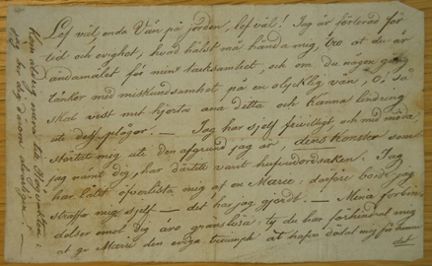 Lef väl, enda Vän på jorden, lef väl! Jag är förlorad för
tid och evighet, hvad halst må hända mig, tro at du är
ändamålet för min tacksamhet, och om du någon gång
tänker med miskundsamhet på en olycklig vän, o! så
skal visst mit hjerta ana detta och känna lindring
uti dess plågor. — Jag har sjelf frivilligt, och med möda
störtat mig uti den afgrund jag är, som
jag nämt dig, har dertill varit hufvudorsaken. Jag
har låtit öfverlista mig af en Marie; derföre borde jag
straffa mig sjelf — det har jag gjordt. — Mina förbin-
delser emot dig äro gränslösa, ty du har förhindrat mig
at ge Marie den triumph at hafva dödat mig för henne
det